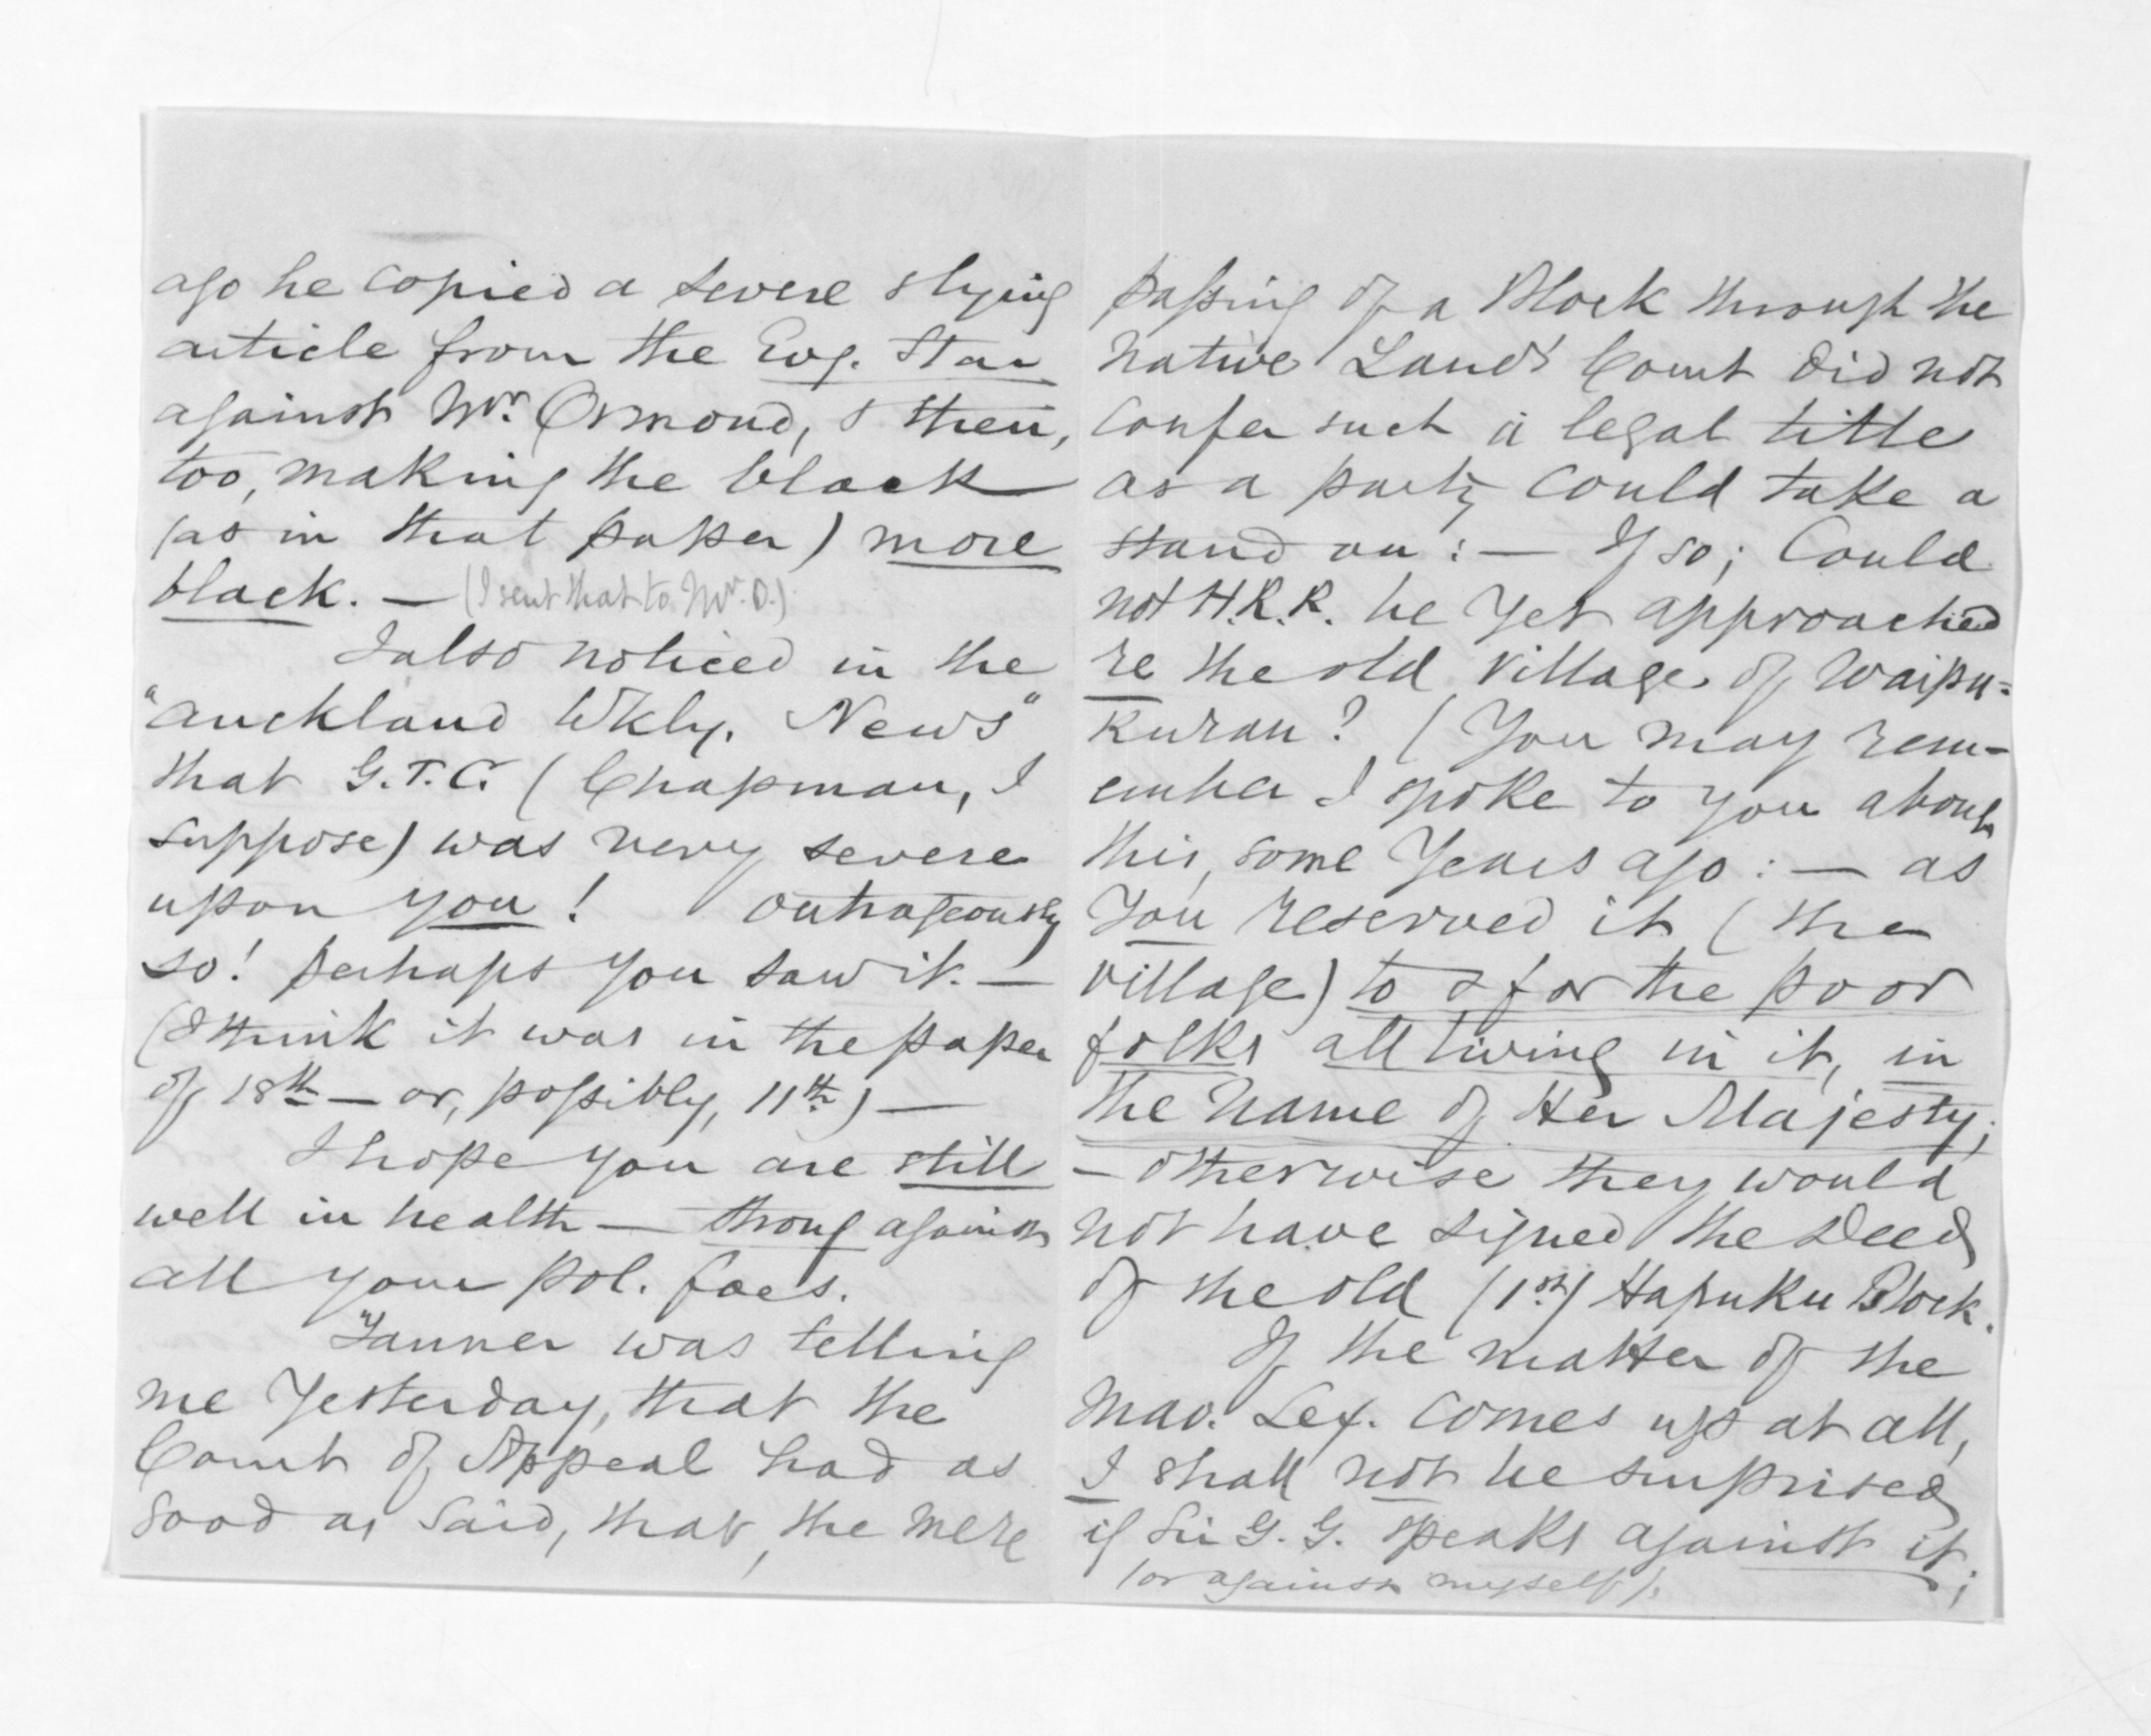 ago he copied a severe slying
article from the Evg. Star
against Mr. Ormond, & then,
too, making the black
(as in that paper) more
black. — (I sent that to Mr. O.)
I also noticed in the
"Auckland Wkly. News"
that G.T.C. (Chapman, I
suppose) was very severe
upon you! outrageously
so! perhaps you saw it. —
(I think it was in the paper
of 18th — or, possibly, 11th) —
I hope you are still
well in health — strong against
all your pol. foes.
Tanner was telling
me yesterday, that the
Court of Appeal had as
good as said, that, the mere
passing of a Block through the
Native Lands' Court did not
confer such a legal title
as a party could take a
stand on: — If so; Could
not H.R.R. be yet approached
re the old village of Waipu=
kurau? (You may rem-
ember I spoke to you about
this, some years ago: — as
you reserved it (the
village) to & for the poor
folks all living in it, in
the name of Her Majesty;
— otherwise they would
not have signed the Deed
of the old (1st) Hapuku Block.
If the matter of the
Mao. Lex. comes up at all,
I shall not be surprised
if Sir G. G. speaks against it;
(or against myself).